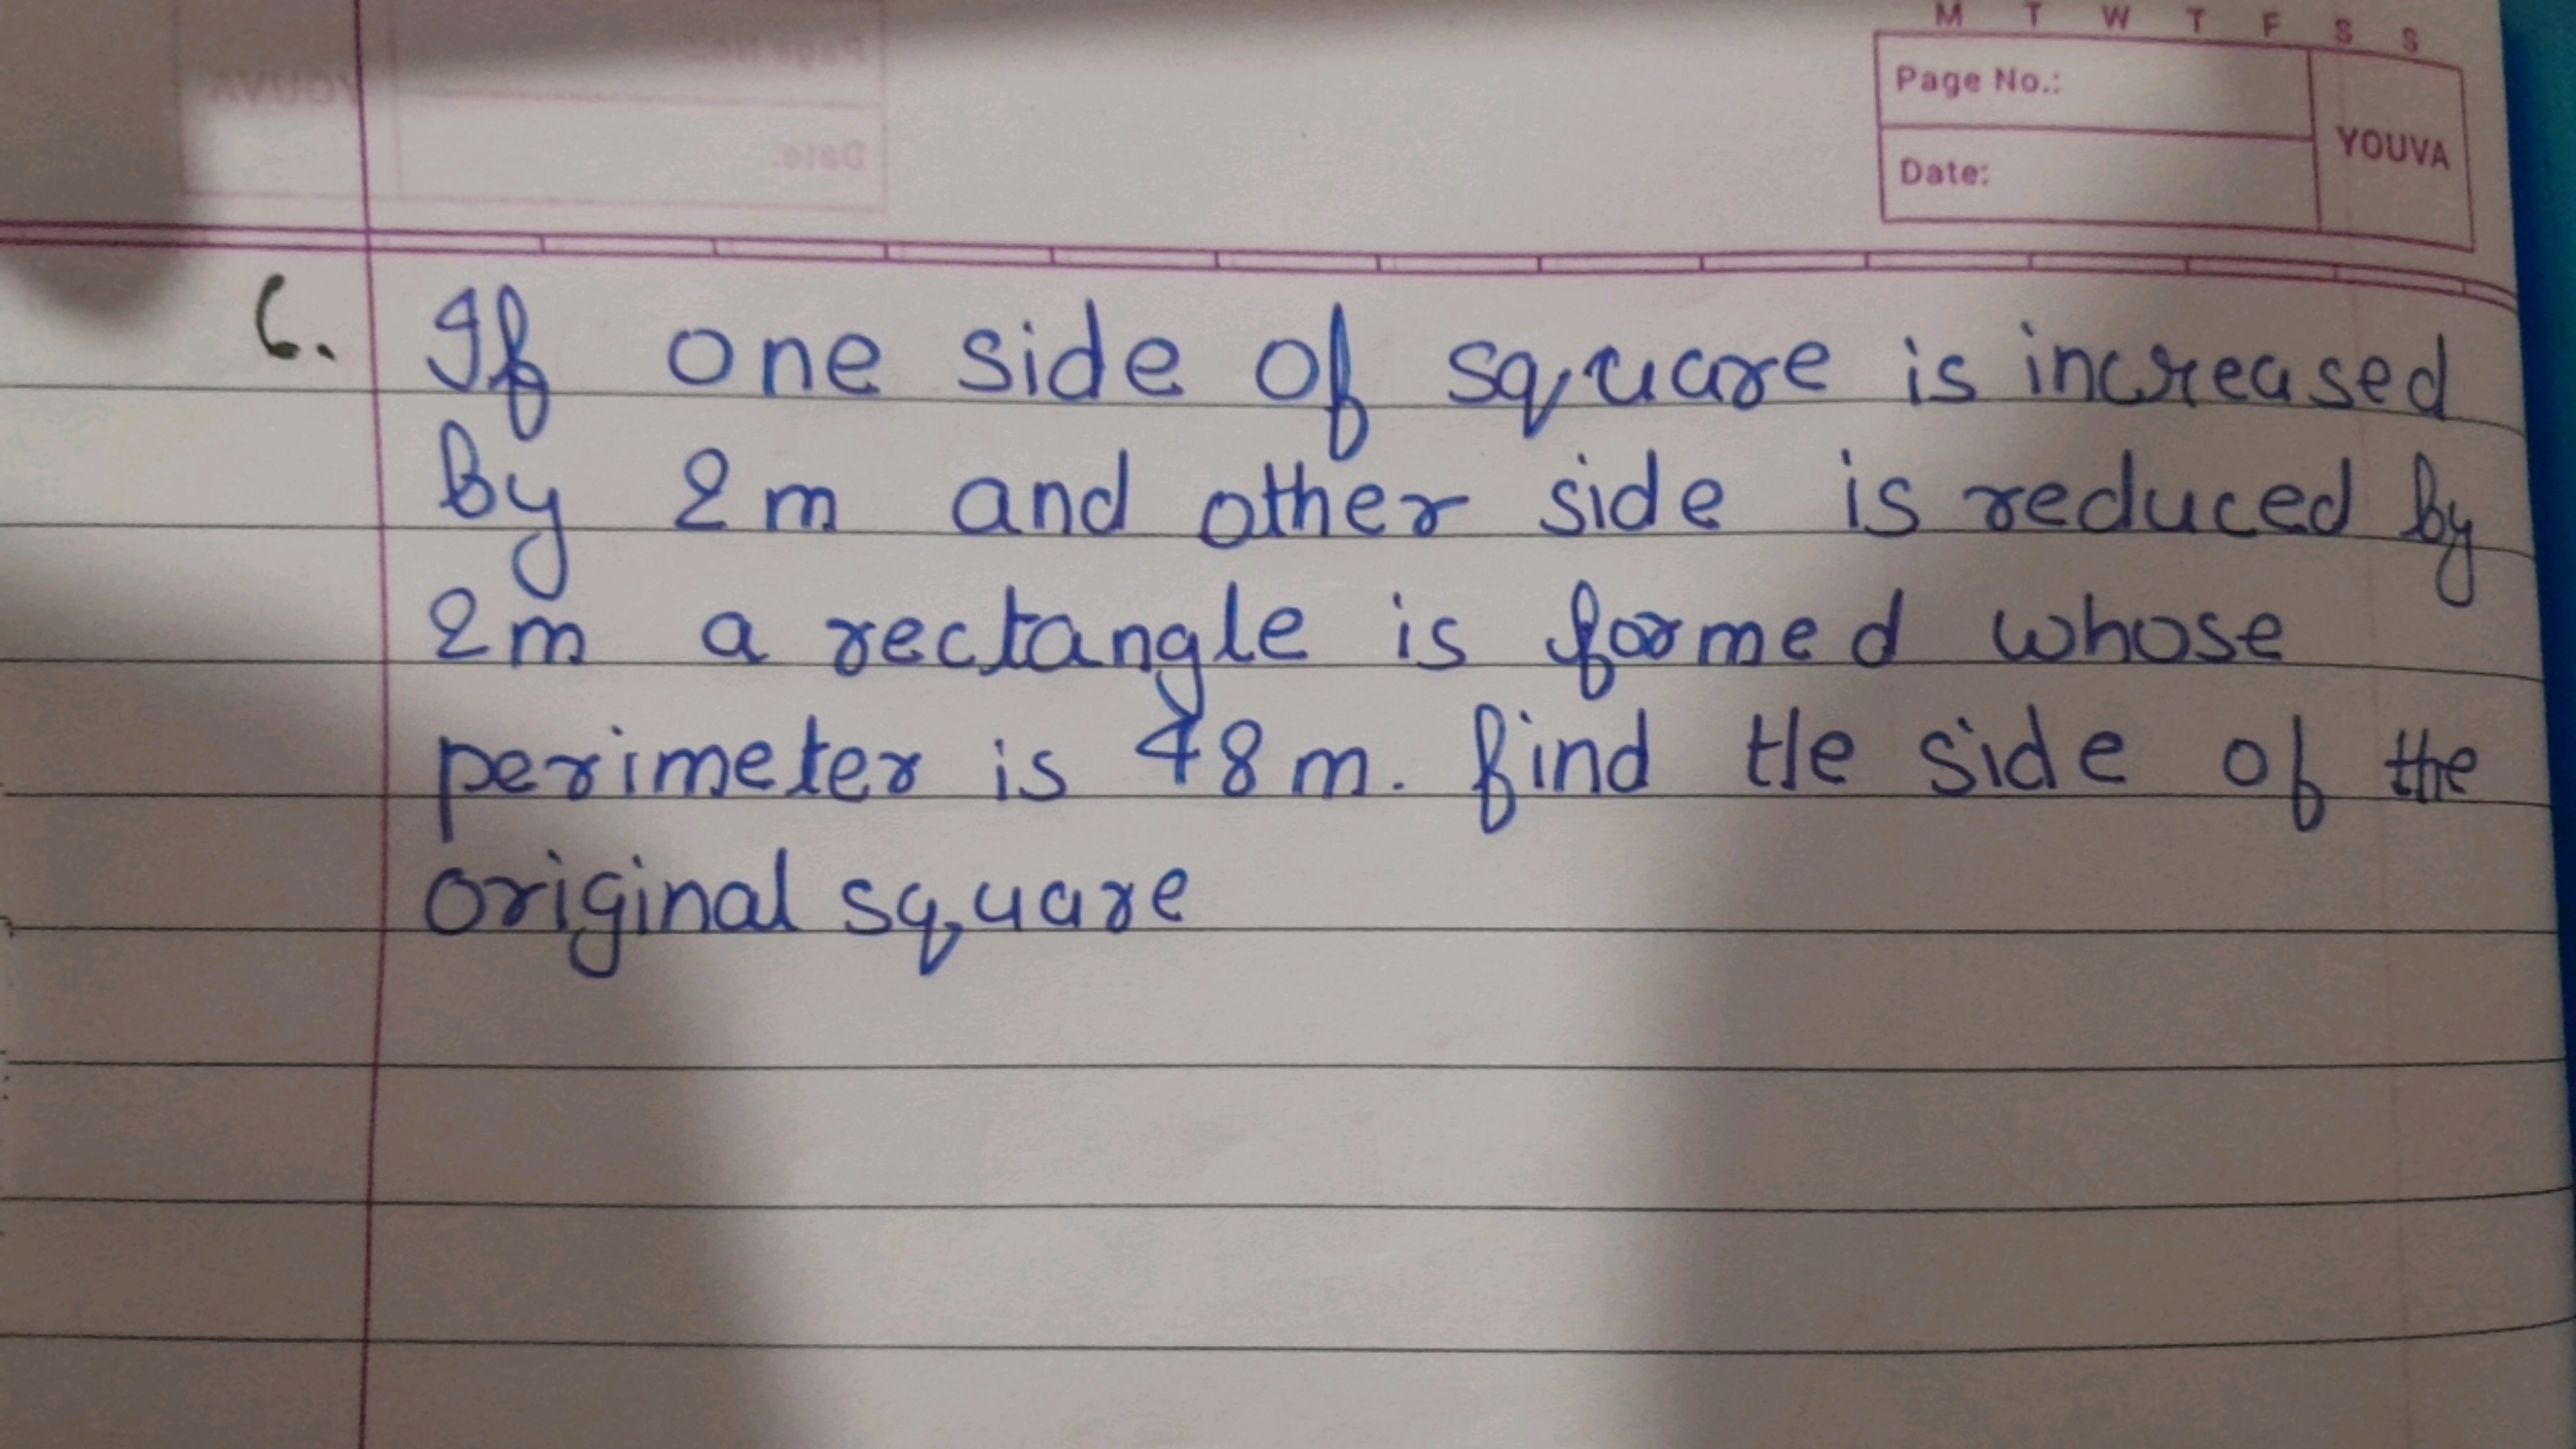 M T W T F S S
Page No.:
YOUVA
Date:
6. If one side of square is increased
by 2m and other side is reduced by
2m a rectangle is formed whose
perimeter is 48m. find the side of the
original square